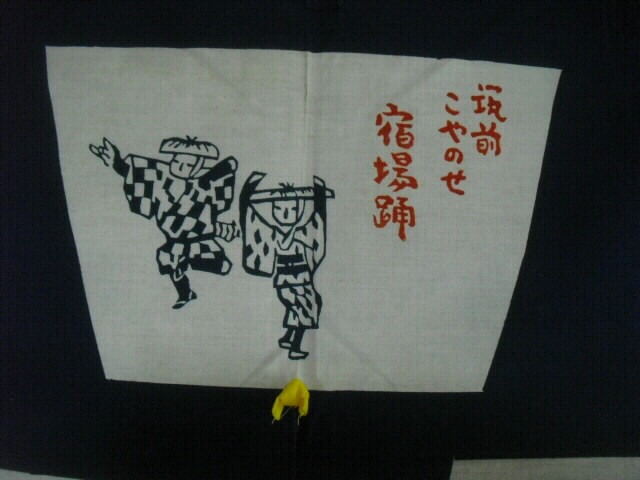 筑前
こやのせ
宿場踊